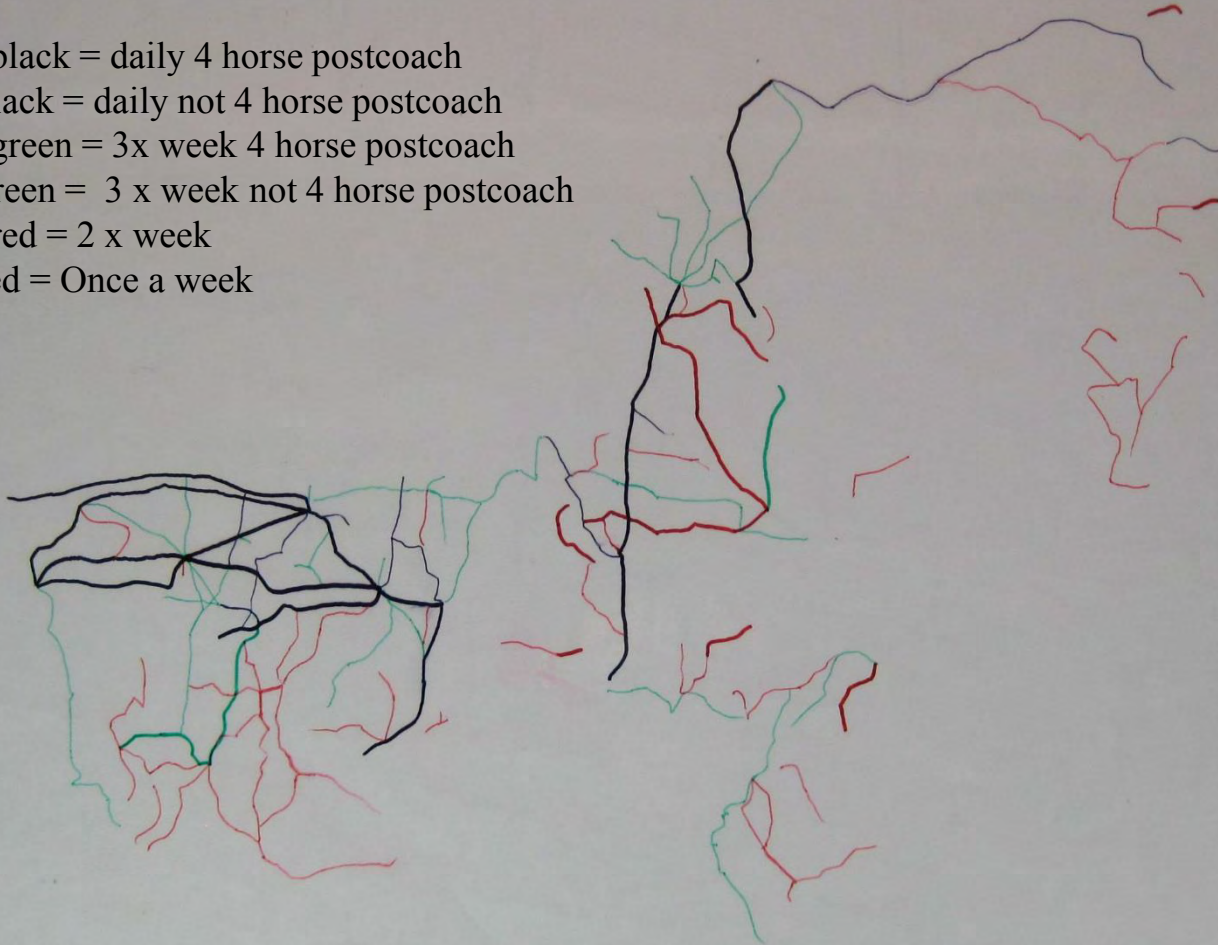 black = daily 4 horse postcoach
ack = daily not 4 horse postcoach
green = 3x week 4 horse postcoach
reen = 3 x week not 4 horse postcoach
red = 2 x week
ed = Once a week